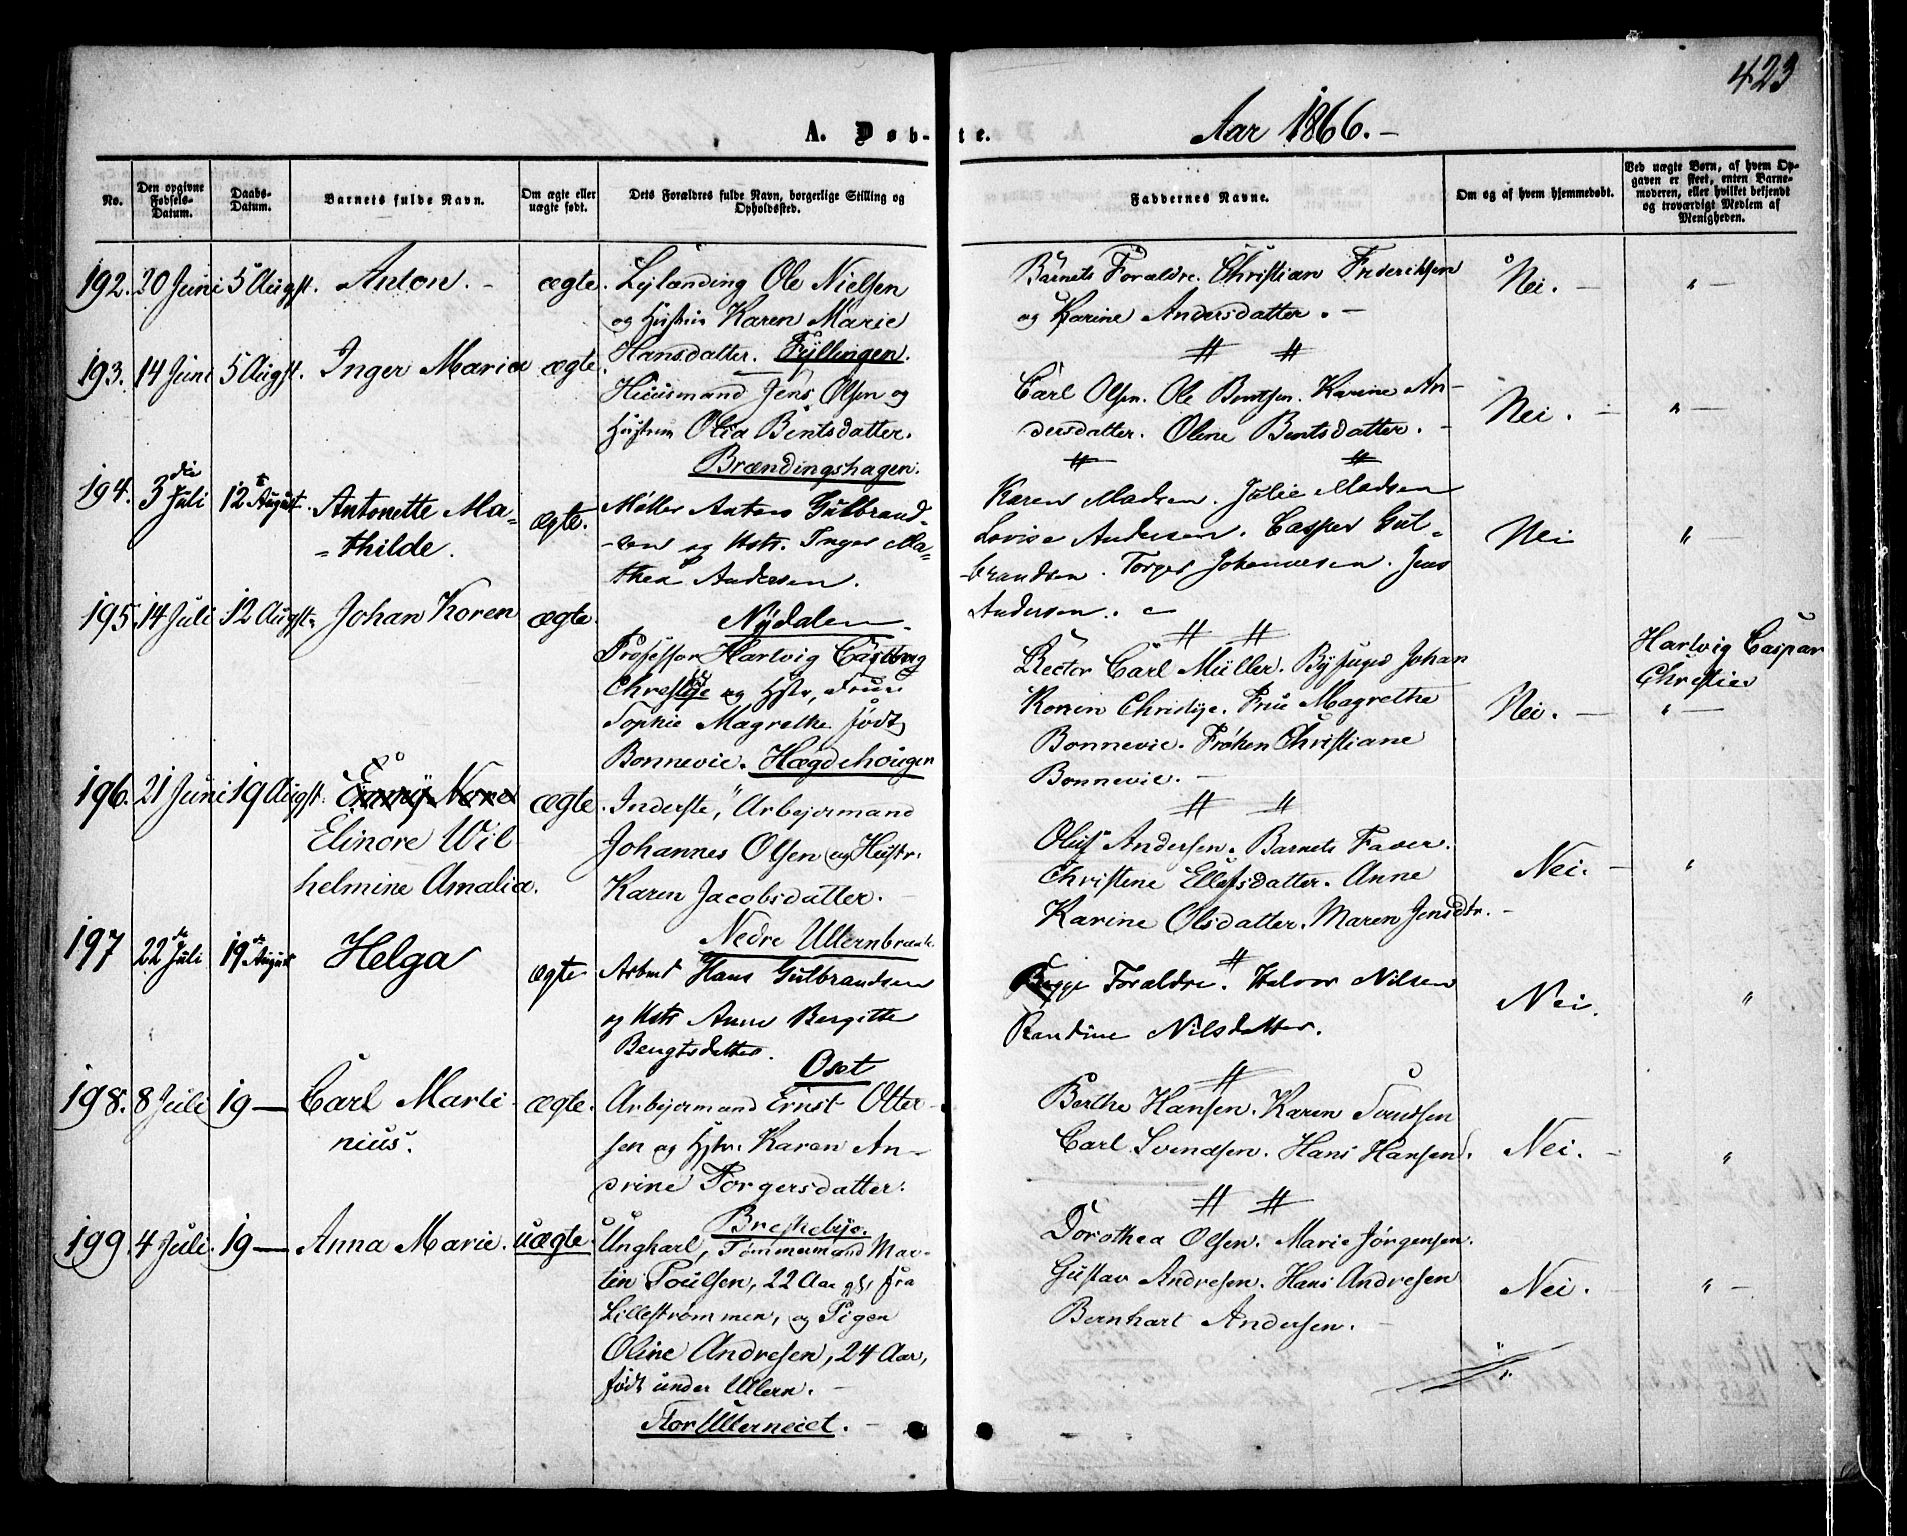 423
A. Døb-te. Aar 1866.-
No.
Den opgivne Fødsels-Datum.
Daabs-Datum.
Barnets fulde Navn.
Om ægte eller uægte født.
Dets Forældres fulde Navn, borgerlige Stilling og Opholdssted.
Faddernes Navne.
Om og af hvem hjemmedøbt.
Ved uægte Børn, af hvem Op-
gaven er skeet, enten Barne-
moderen, eller hvilket bekjendt
og troværdigt Medlem af
Menigheden.
192. 20 Juni 5 Augst. Anton. - ægte.
Leylænding Ole Nielsen
og Hustru Karen Marie
Hansdatter. Fyllingen.
Barnets Forældre. Christian Frederiksen
og Karine Andersdatter. -
Nei. - " -
193. 14 Juni 5 Augst. Inger Marie ægte.
Huusmand Jens Olsen og
Hustru Olia Bentsdatter.
Brændingshagen.
Carl Olsen. Ole Bentsen. Karine An-
dersdatter. Oline Bentsdatter. -
Nei. - " -
194. 3die Juli 12te August. Antonette Ma-
-thilde. ægte.
Møller Anton Gulbrand-
-sen og Hstr. Inger Ma-
thea Andersen.
Nydalen.
Karen Madsen. Julie Madsen
Lovise Andersen. Casper Gul-
-brandsen. Torger Johannesen. Jens
Andersen.
Nei " -
195. 14 Juli 12 Augst. Johan Koren ægte.
Professor Hartvig Castberg
Christie og Hstr, Frue
Sophie Magrethe født
Bonnevie. Hægdehougen
Rector Carl Müller. Byfuged Johan
Koren Christije. Frue Magrethe
Bonnevie. Frøken Christiane
Bonnevie. -
Nei. -
Hartvig Caspar
Christies
" -
196. 21 Juni 19 Augst.
Elinore Wil-
helmine Amalia. ægte.
Inderste, Arbejdsmand
Johannes Olsen og Hustr.
Karen Jacobsdatter. -
Nedre Ullernbraat.
Oluf Andersen. Barnets Fader.
Christene Ellefsdatter. Anne
Karine Olsdatter. Maren Jensdtr. -
Nei. - "
197 22de Juli 19de August Helga ægte
Arbmd Hans Gulbrandsen
og Hstr Anne Bergitte
Bengtsdatter. Oset
Begge Forældre. Halvor Nilsen
Randine Nilsdatter.
Nei. "
198. 8 Juli 19 - Carl Marti-
nius. ægte.
Arbejdsmand Ernst Otter-
sen og Hstr. Karen An-
drine Torgersdatter.
Breskebye.
Berthe Hansen. Karen Svendsen
Carl Svendsen. Hans Hansen.
Nei. - "
199. 4 Juli. 19 - Anna Marie. uægte.
Ungkarl, Tømmermand Mar-
tin Poulsen, 22 Aar gl. fra
Lillestrømmen, og Pigen
Oline Andresen, 24 Aar,
født under Ullern. -
Stor Ullerneiet. -
Dorothea Olsen. Marie Jørgensen.
Gustav Andresen. Hans Andresen
Bernhart Andersen. -
Nei. - " -